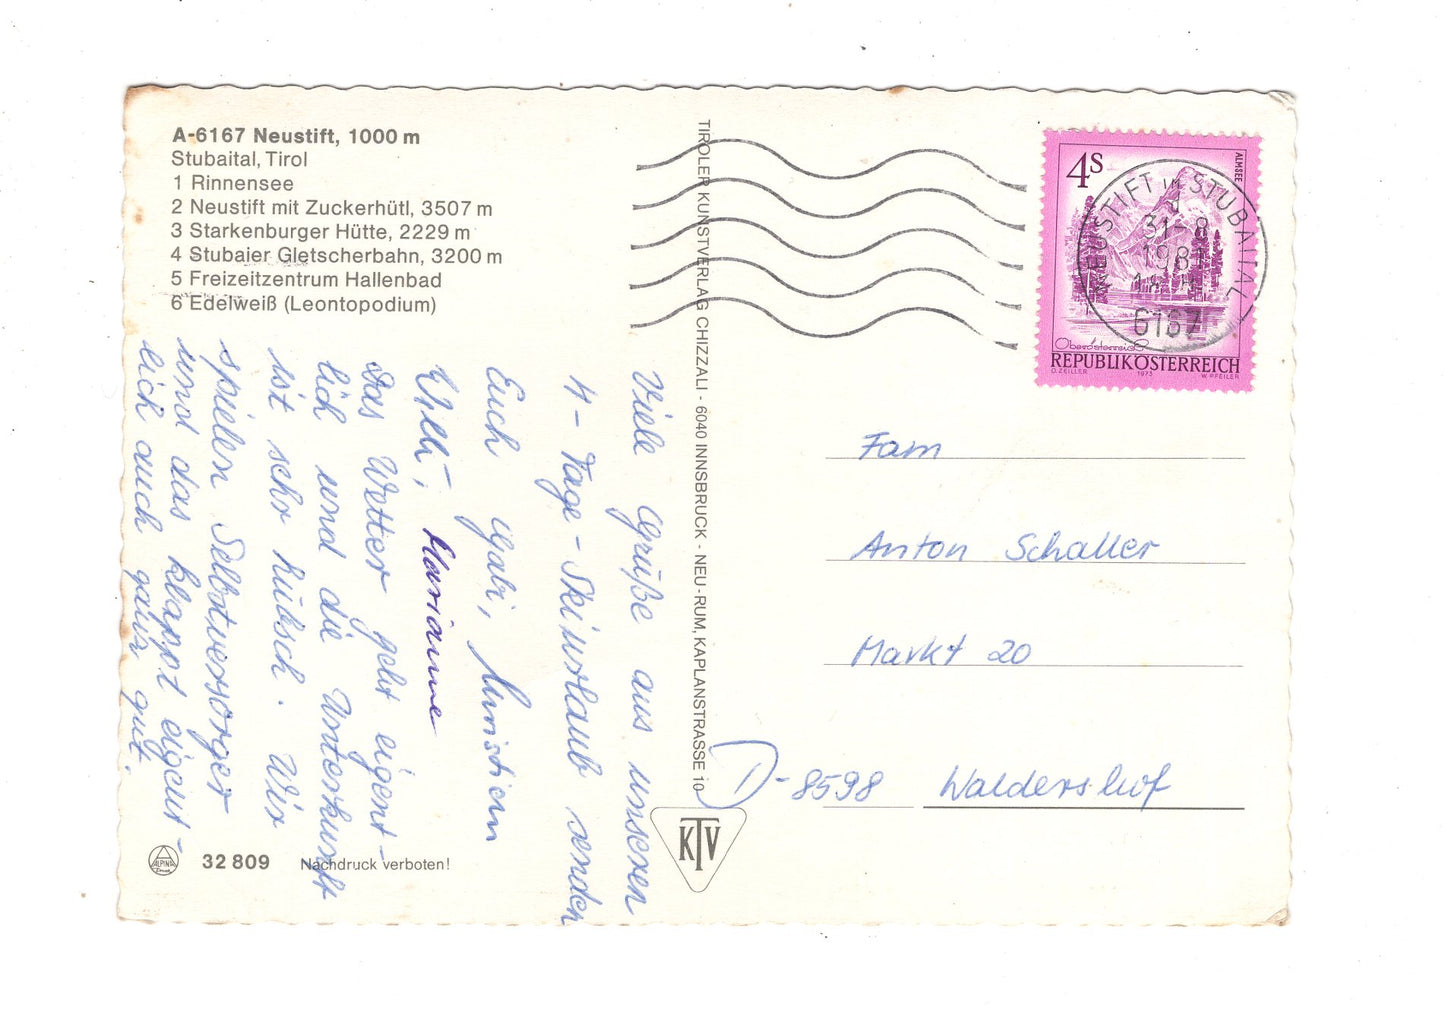 A-6167 Neustift, 1000 m
Stubaital, Tirol
1 Rinnensee
2 Neustift mit Zuckerhütl, 3507 m
3 Starkenburger Hütte, 2229 m
4 Stubaier Gletscherbahn, 3200 m
5 Freizeitzentrum Hallenbad
6 Edelweiß (Leontopodium)
Viele Grüße aus unserem
4-Tage-Skiurlaub senden
Euch Gabi, Christian
Willi, Marianne
Das Wetter geht eigent-
lich und die Unterkunft
ist sehr hübsch. Wir
spielen Selbstversorger
und das klappt eigent-
lich auch ganz gut.
ALPINA
32 809
Nachdruck verboten!
TIROLER KUNSTVERLAG CHIZZALI - 6040 INNSBRUCK - NEU-RUM, KAPLANSTRASSE 10
KTV
4S
ALMSEE
Oberösterreich
REPUBLIK ÖSTERREICH
O. ZEILLER 1973 W. PFEILER
NEUSTIFT IM STUBAITAL
31-8
1981
6167
Fam
Anton Schaller
Markt 20
D-8598 Waldershof